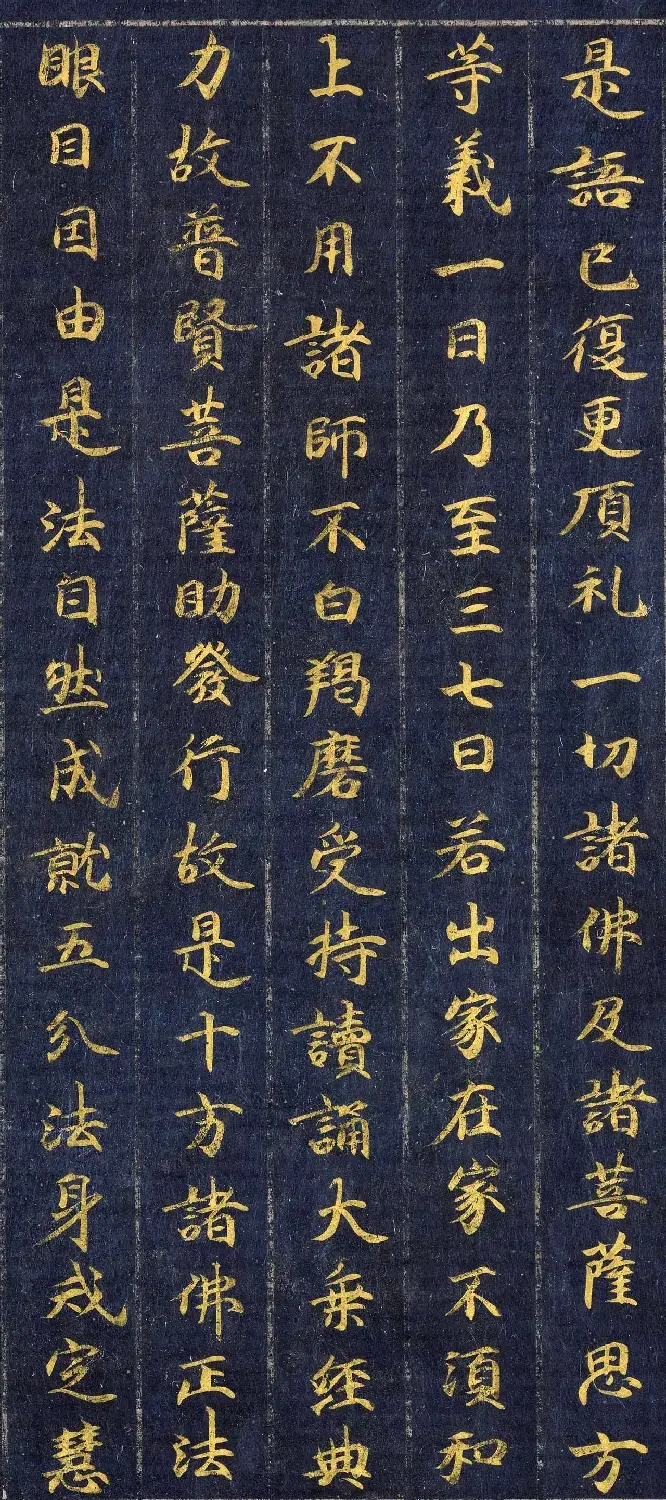 是語已復更頂礼一切諸佛及諸菩薩思方
等義一日乃至三七日若出家在家不須和
上不用諸師不白羯磨受持讀誦大乗經典
力故普賢菩薩助發行故是十方諸佛正法
眼目因由是法自然成就五分法身戒定慧